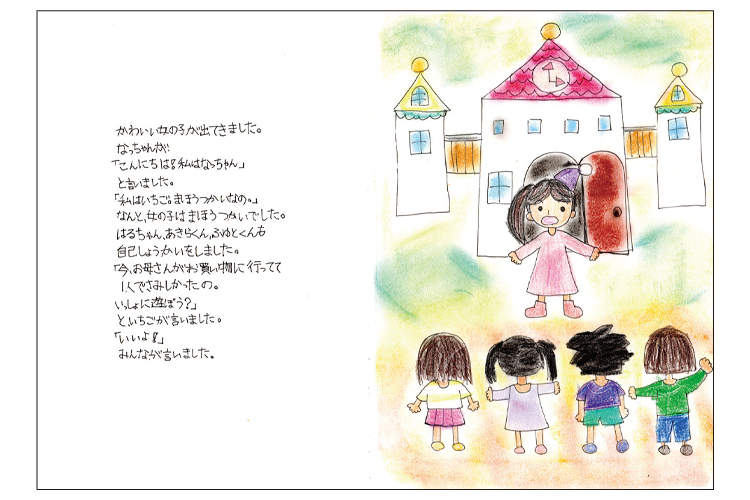 かわいい女の子が出てきました。
なっちゃんが
「こんにちは!私はなっちゃん」
と言いました。
「私はいちご。まほうつかいなの。」
なんと、女の子はまほうつかいでした。
はるちゃん、あきらくん、ふゆとくんも
自己しょうかいをしました。
「今、お母さんがお買い物に行ってて
1人でさみしかったの。
いっしょに遊ぼう?」
と、いちごが言いました。
「いいよ!」
みんなが言いました。